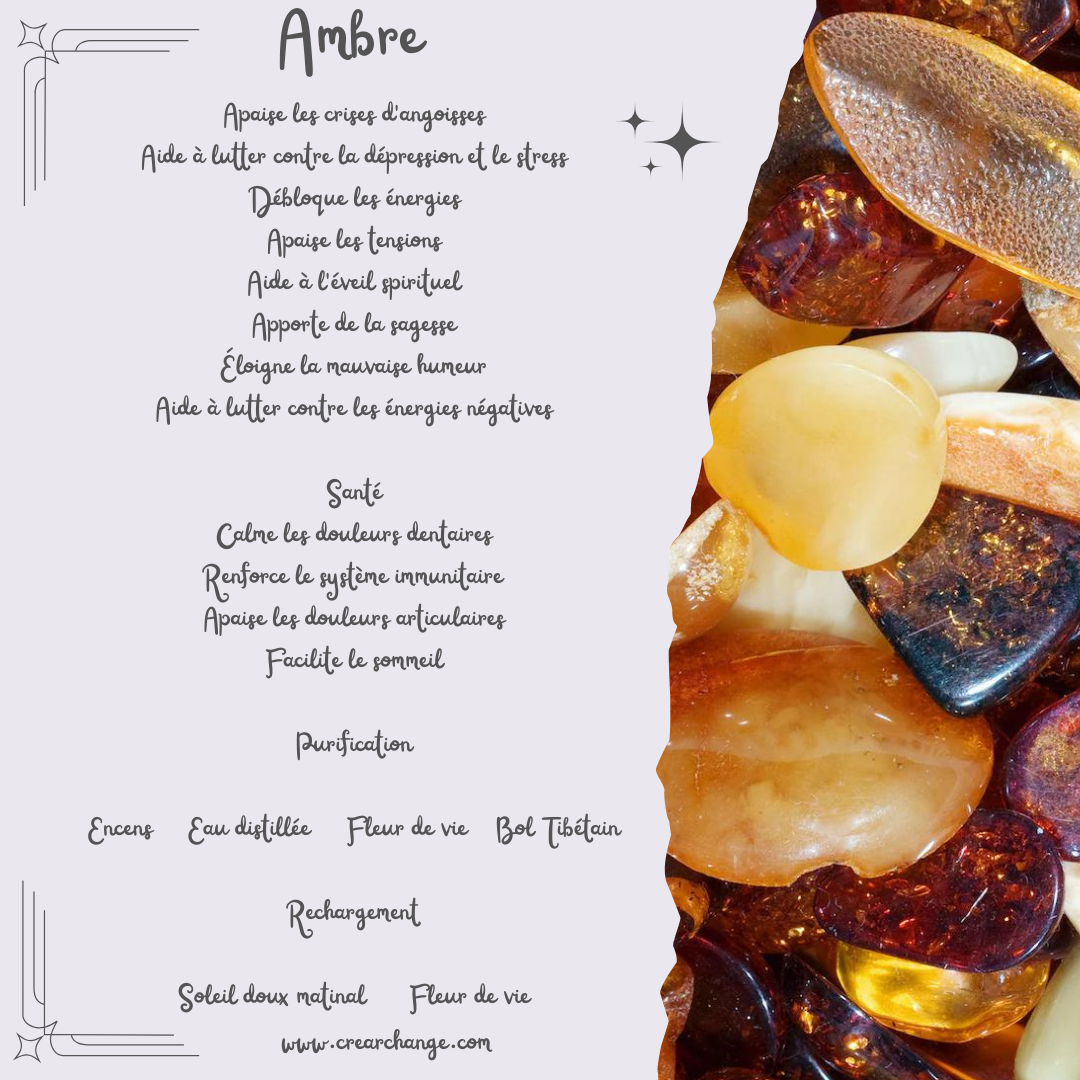 Ambre
Apaise les crises d'angoisses
Aide à lutter contre la dépression et le stress
Débloque les énergies
Apaise les tensions
Aide à l'éveil spirituel
Apporte de la sagesse
Éloigne la mauvaise humeur
Aide à lutter contre les énergies négatives
Santé
Calme les douleurs dentaires
Renforce le système immunitaire
Apaise les douleurs articulaires
Facilite le sommeil
Purification
Encens Eau distillée Fleur de vie Bol Tibétain
Rechargement
Soleil doux matinal Fleur de vie
www.crearchange.com